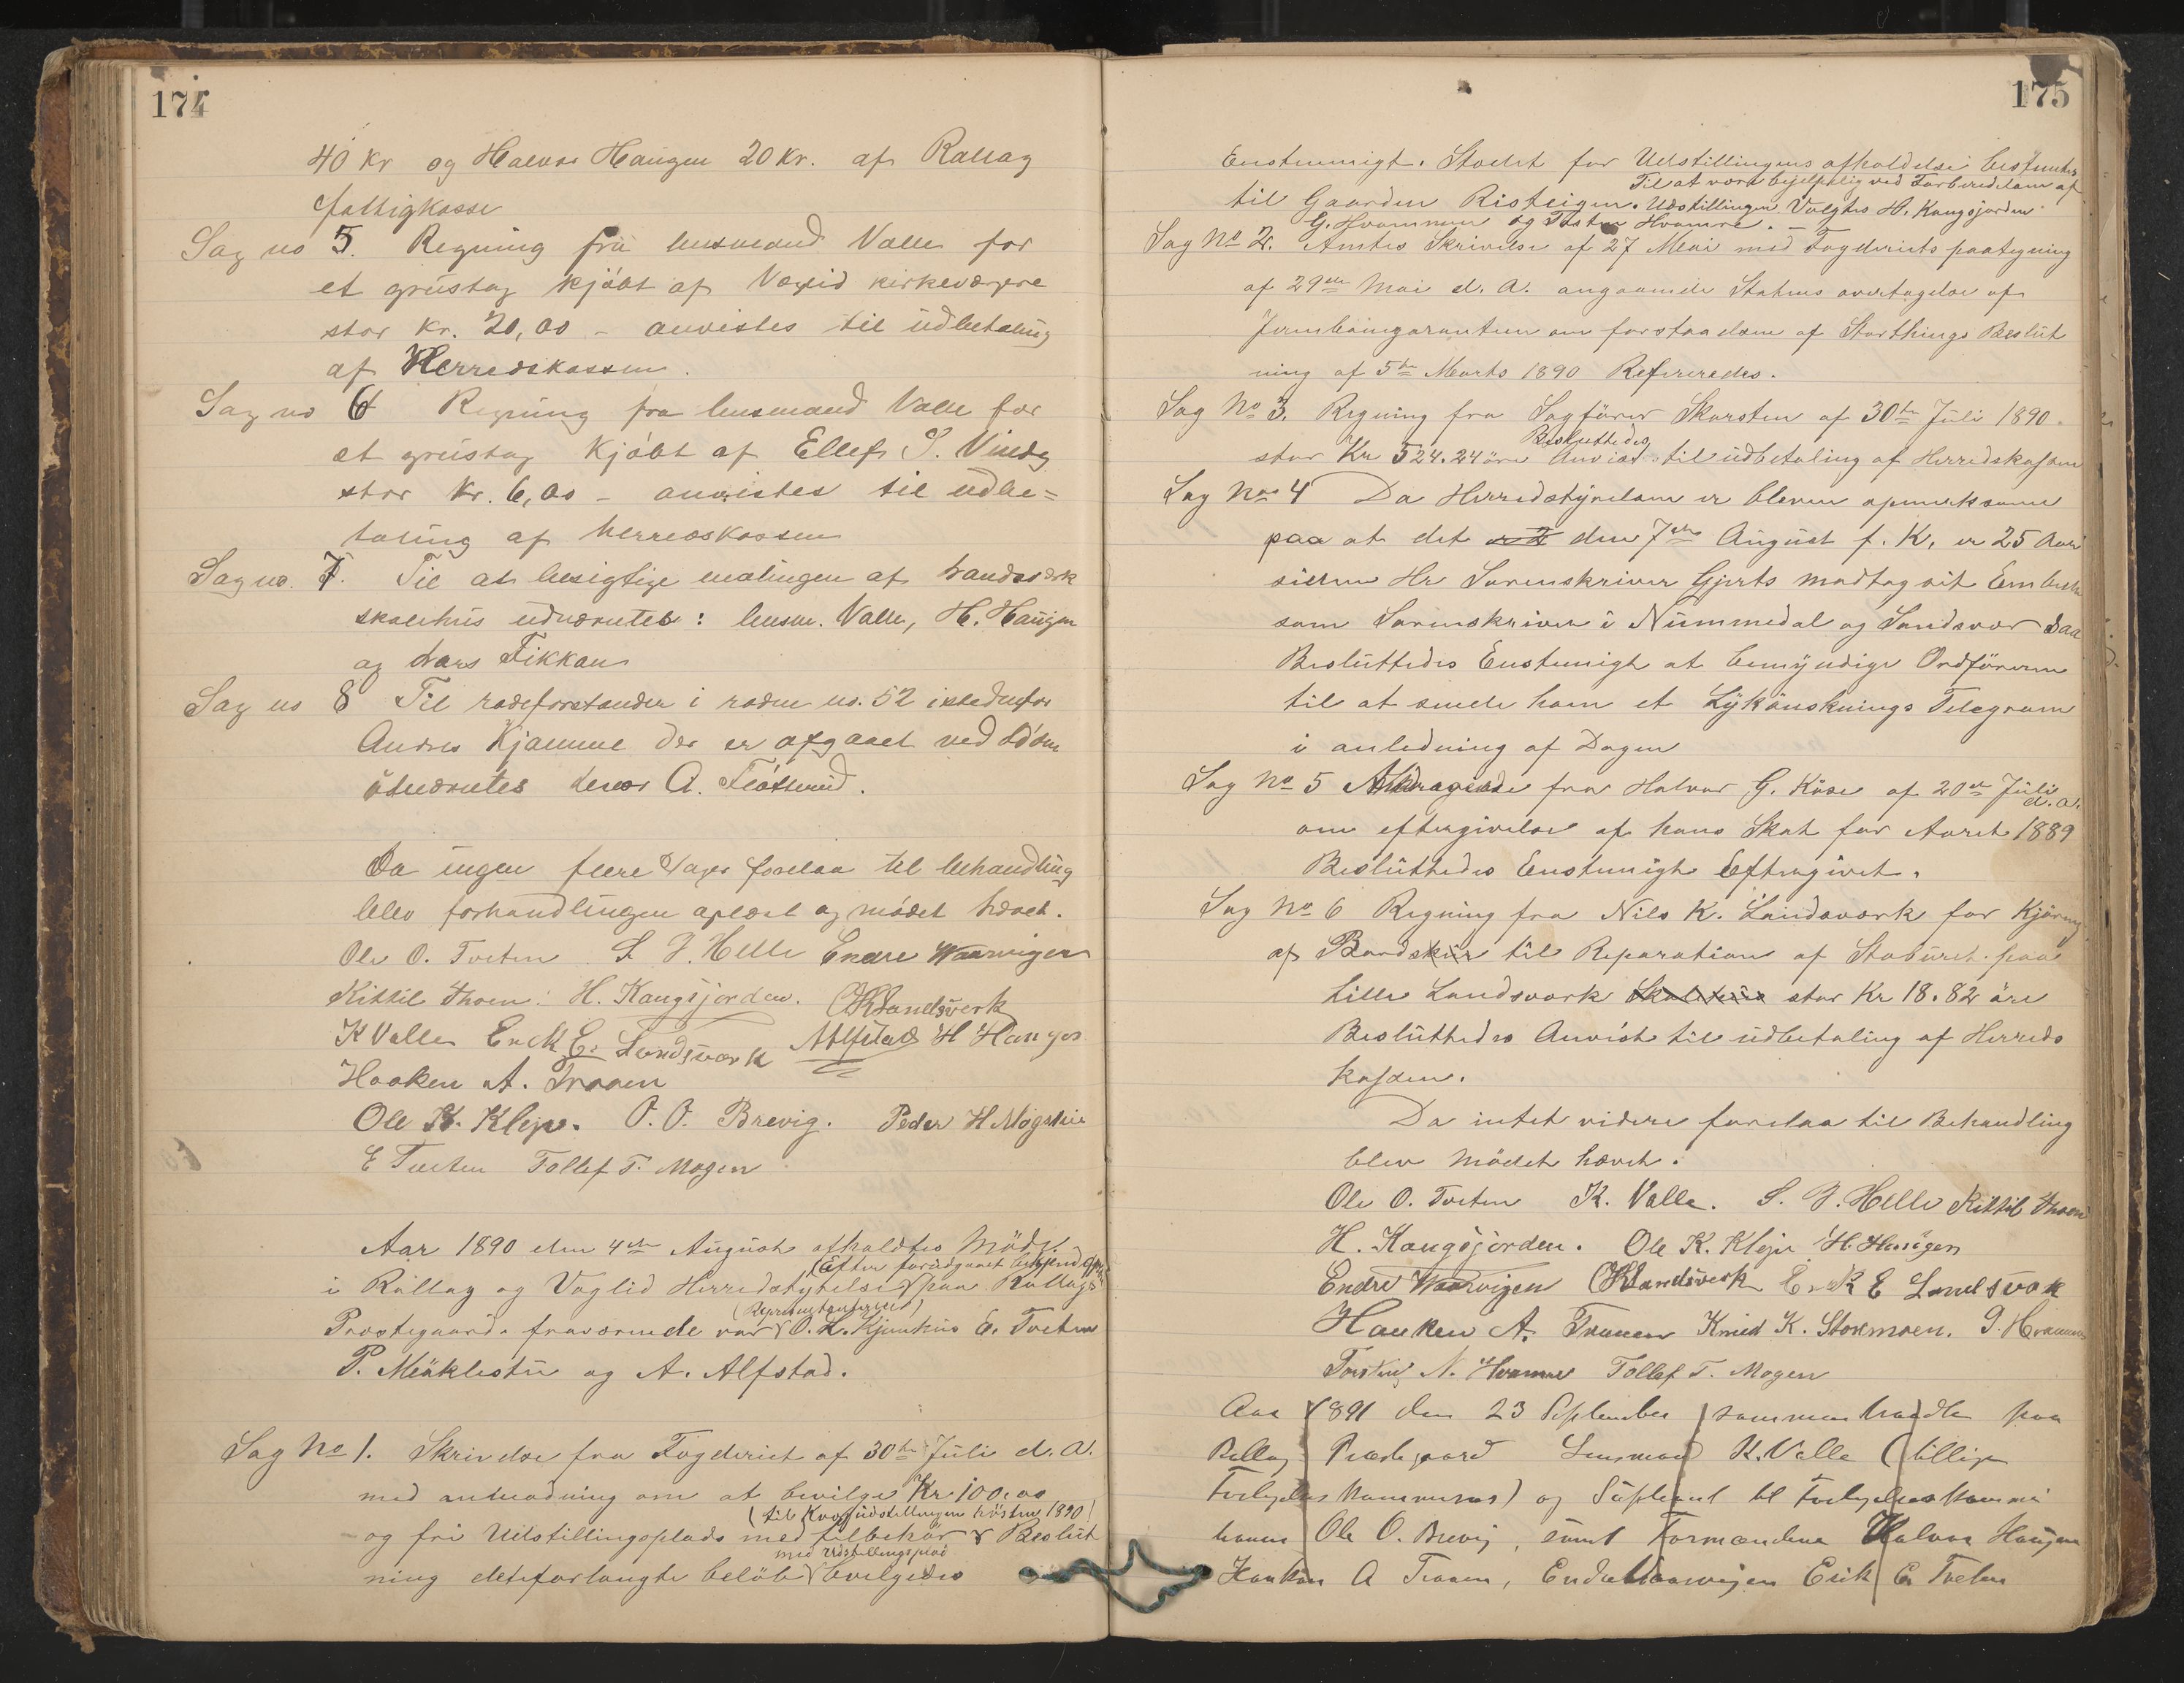 174
40 kr og Halvor Haugen 20 kr. af Rallag
fattigkasse
Sag no 5. Regning fra lensmand Valle for
et grustag kjøbt af Veglid kirkeværge
stor kr. 20,00 – anvistes til udbetaling
af Herredskassen.
Sag no 6 Regning fra lensmand Valle for
et grustag kjøbt af Ellef S.
stor kr. 6,00 – anvistes til udbe=
taling af herredskassen
Sag no. 7. Til at besigtige malingen af Landsværk
skolehus udnævntes: lensm. Valle, H. Haugen
og Lars Fikkan
Sag no 8 Til rodeforstander i roden no. 52 istedenfor
Andres Kjømme der er afgaaet ved døden
udnævntes A.
Da ingen flere sager forelaa til behandling
blev forhandlingen oplæst og mødet hævet.
Ole O. Tveten S J. Helle Endre Waarvigen
Kittil Thoen. H. Kongsjorden. OK Landsverk
K Valle Erik E. Landsværk A Alfstad H Haugen
Haaken A. Traaen
Ole K. Klejve. O. O. Brevig. Peder H
E Tveten Tollef T. Mogen
Aar 1890 den 4de August afholdtes Möde
(Efter forudgaaet
i Rallag og Veglid Herredstyrelse paa Rallags
(Repræsentanterne)
Prestegaard. fraværende var O. L. Kjemhus E. Tveten
P. og A. Alfstad.
Sag No 1. Skrivelse fra Fogderiet af 30te Juli d. A.
med anmodning om at bevilge Kr 100,00
(til Kvægudstillingen hösten 1890)
og fri Udstillingsplads med tilbehör Beslut
med Udstillingsplad
ning det forlangte belöb bevilgedes
175
Enstemmigt. Stedet for Udstillingens afholdelse bestemtes
Til at være behjelpelig ved Forberedelsen af
til Gaarden Risteigen. Udstillingen Valgtes H. Kongsjorden
G. Hvammen og Tosten Hvamre. –
Sag No 2. Amtes Skrivelse af 27 Mai med Fogderiets paategning
af 29de Mai d. A. angaaende Statens overtagelse af
Jernbanegarantien om forstaaelsen af Storthings Beslut
ning af 5te Marts 1890 Refereredes.
Sag No 3. Regning fra Sagförer Skarsten af 30te Juli 1890.
Besluttedes
stor Kr 524.24 öre Anvist til udbetaling af Herredskassen
Sag No 4 Da Herredstyrelsen er bleven opmerksom
paa at det den 7de August f. K, er 25 Aar
siden Hr Sorenskriver Gjerts modtog sit Embede
som Sorenskriver i Nummedal og Sandsvær Saa
Besluttedes Enstemigt at bemyndige Ordföreren
til at sende ham et Lykönsknings Telegram
i anledning af Dagen
Sag No 5 Andragende fra Halvor G. Köse af 20de Juli
d. A.
om eftergivelse af hans Skat for Aaret 1889
Besluttedes Enstemigt Eftergivet.
Sag No 6 Regning fra Nils K. Landsværk for Kjöring
af Bord til Reparation af Staburet paa
Lille Landsværk stor Kr 18.82 öre
Besluttedes Anvist til udbetaling af Herreds
kassen.
Da intet videre forelaa til Behandling
blev Mödet hævet.
Ole O. Tveten K. Valle. S. J. Helle Kittil Thoen
H. Kongsjorden. Ole K. Klejve H. Haugen
Endre Waarvigen OK Landsverk E. E Landsværk
Haaken A. Traaen Knud K. Stormoen. G. Hvammen
Torsten N. Hvamre Tollef T. Mogen
Aar 1891 den 23 September sammentraadte paa
Rollag Præstegaard Lensmand K. Valle (tillige
Forligelses Kommissær) og Suppleant til Forligelseskommis
sionen Ole O. Brevig, samt Formændene Halvor Haugen
Haakon A Traaen, Endre Waarvigen Erik E. Tveten